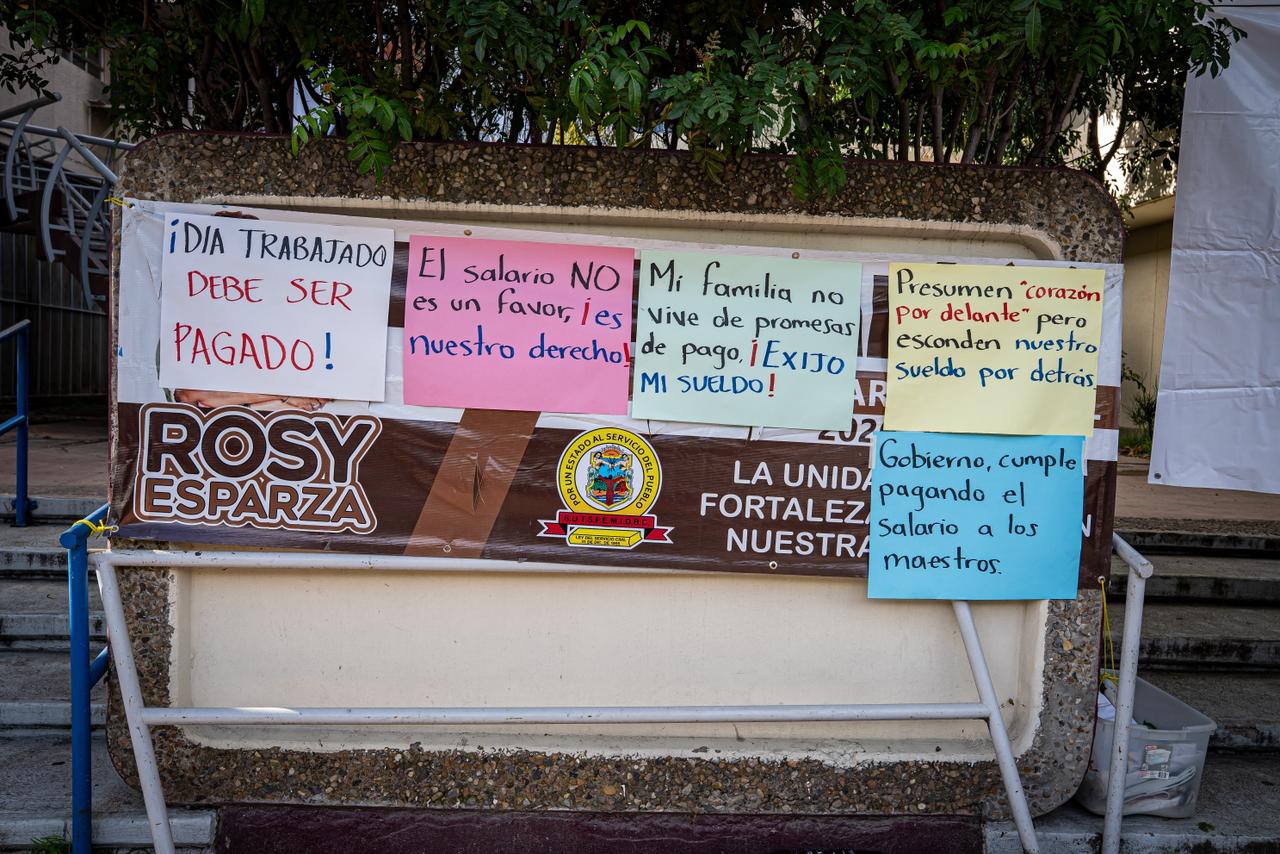 ¡DIA TRABAJADO
DEBE SER
PAGADO!
El salario NO
es un favor, ¡es
nuestro derecho!
Mi familia no
vive de promesas
de pago, ¡EXIJO
MI SUELDO!
Presumen "corazón
por delante" pero
esconden nuestro
sueldo por detrás.
Gobierno, cumple
pagando el
salario a los
maestros.
ROSY
ESPARZA
POR UN ESTADO AL SERVICIO DEL PUEBLO
S.U.T.S.P.E.M.I.D.B.C.
LEY DEL SERVICIO CIVIL
LA UNIDA
FORTALEZ
NUESTRA